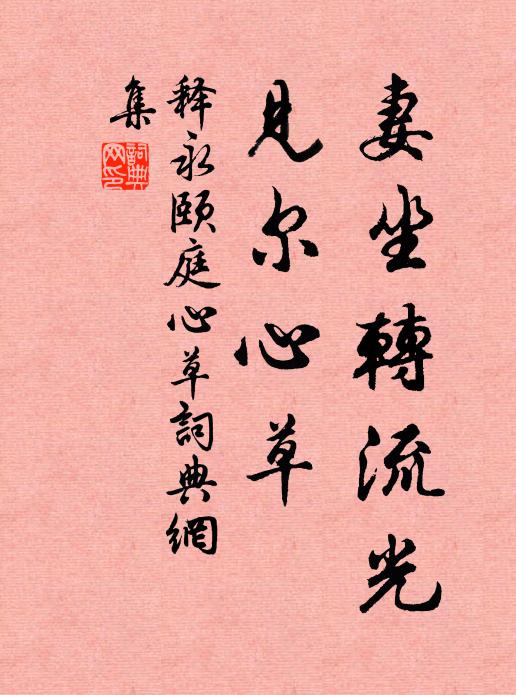 妻坐轉流光
見尔心草
释永颐庭心草詞典網
集
詞典網印